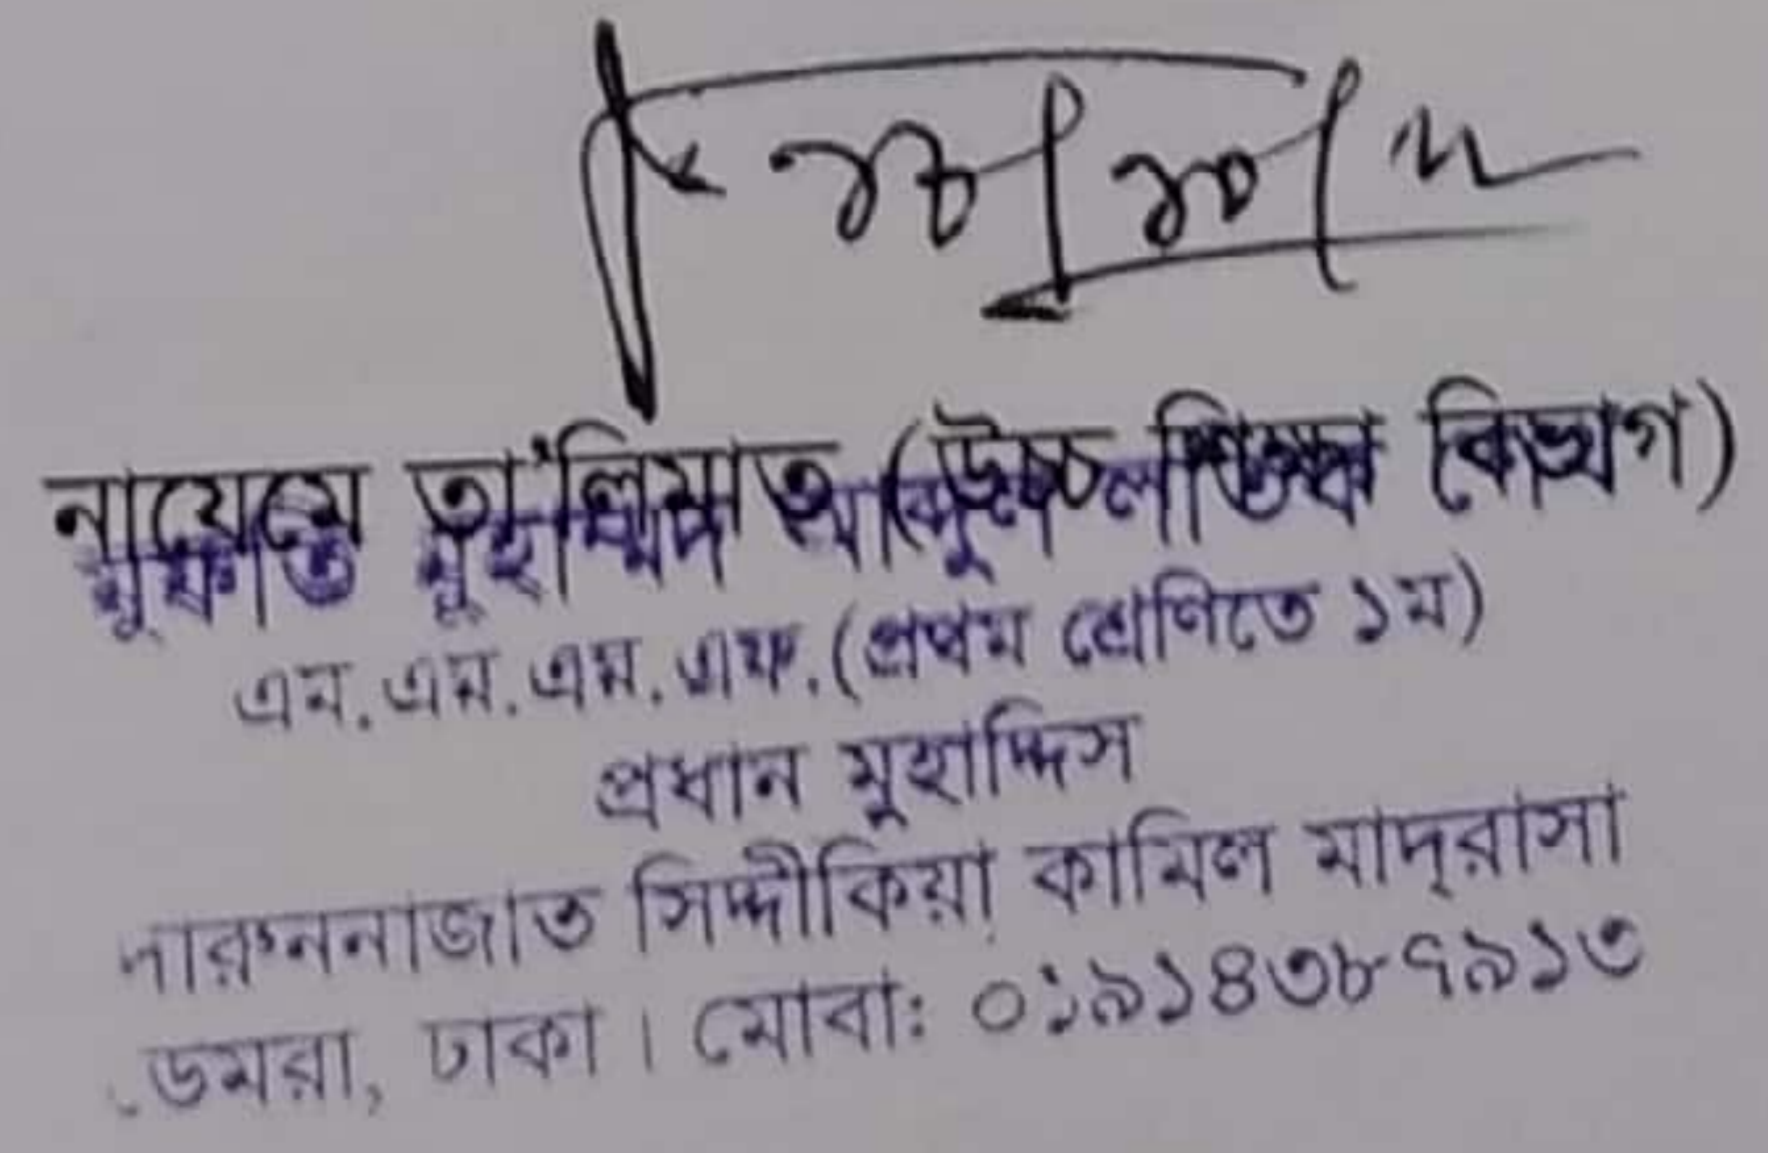 নায়েমে তা'লিমাত (উচ্চ শিক্ষা বিভাগ)
মুফতি মুহাম্মদ আবদুল লতিফ
এম.এম.এম.এফ.(প্রথম শ্রেণিতে ১ম)
প্রধান মুহাদ্দিস
দারুননাজাত সিদ্দীকিয়া কামিল মাদ্‌রাসা
ডেমরা, ঢাকা। মোবা: ০১৯১৪৩৮৭৯১৩